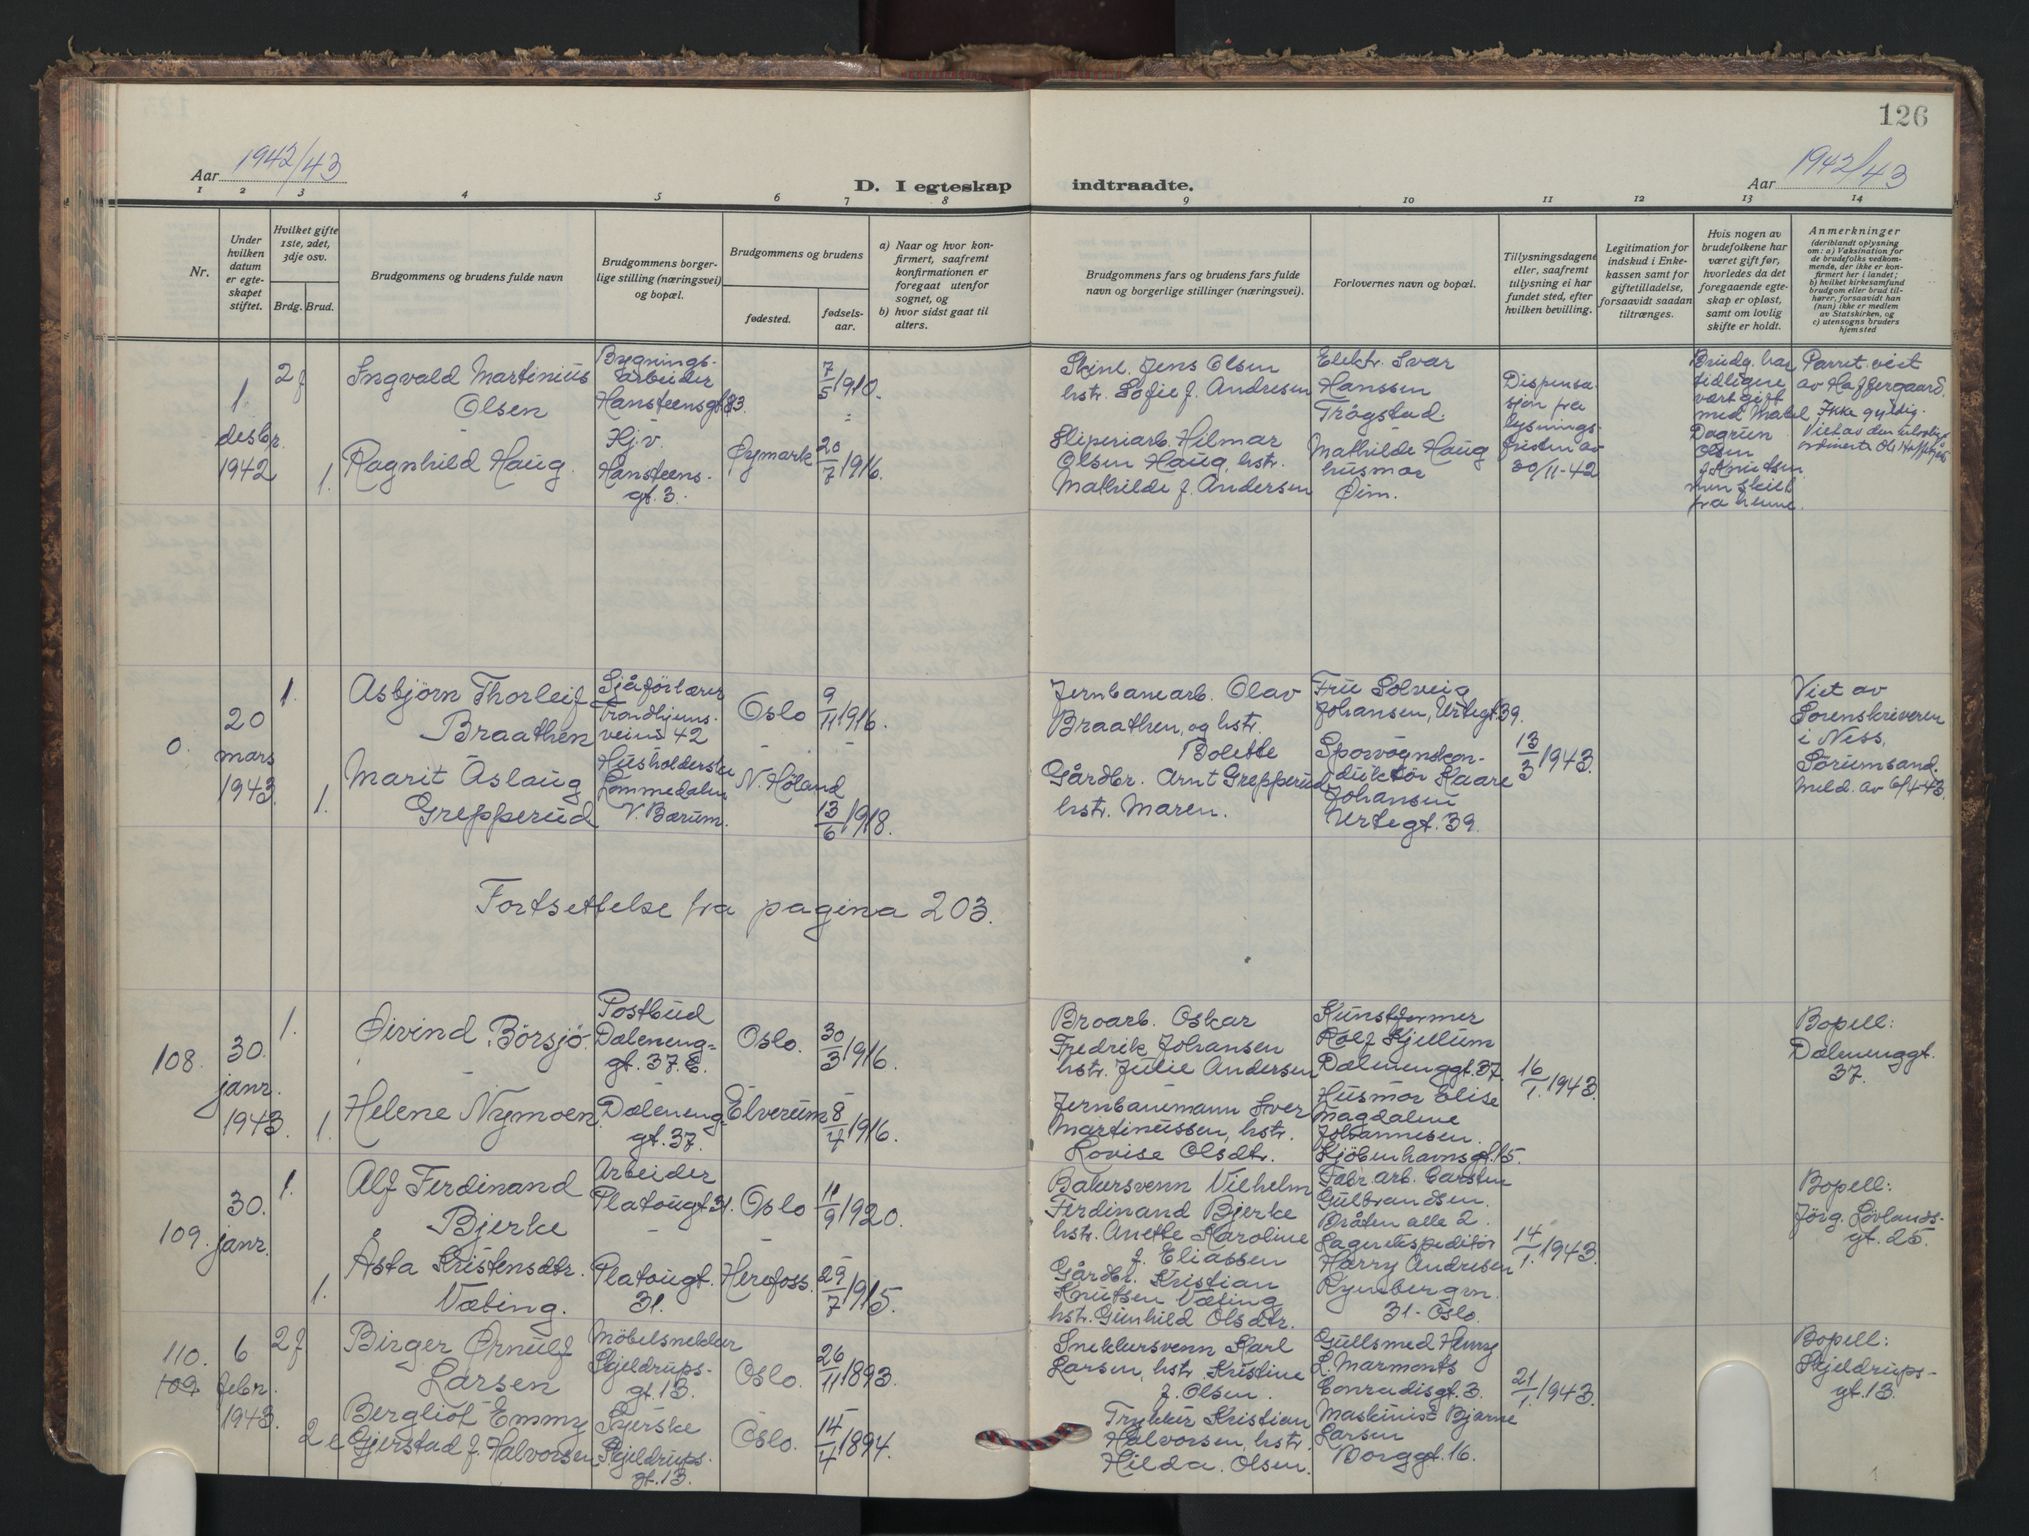 126
Aar 1942/43
D. I egteskap indtraadte.
Aar 1942/43
1 2 3 4 5 6 7 8 9 10 11 12 13 14
Nr.
Under hvilken datum er egteskapet stiftet.
Hvilket gifte 1ste, 2det, 3dje osv.
Brdg. Brud.
Brudgommens og brudens fulde navn
Brudgommens borgerlige stilling (næringsvei) og bopæl.
Brudgommens og brudens
fødested.
fødselsaar.
a) Naar og hvor konfirmert, saafremt konfirmationen er foregaat utenfor sognet, og
b) hvor sidst gaat til alters.
Brudgommens fars og brudens fars fulde navn og borgerlige stillinger (næringsvei).
Forlovernes navn og bopæl.
Tillysningsdagene eller, saafremt tillysning ei har fundet sted, efter hvilken bevilling.
Legitimation for indskud i Enkekassen samt for giftetilladelse, forsaavidt saadan tiltrænges.
Hvis nogen av brudefolkene har været gift før, hvorledes da det foregaaende egteskap er opløst, samt om lovlig skifte er holdt.
Anmerkninger
(deriblandt oplysning om: a) Vaksination for de brudefolks vedkommende, der ikke er konfirmert her i landet; b) hvilket kirkesamfund brudgom eller brud tilhører, forsaavidt han (hun) ikke er medlem av Statskirken, og c) utensogns bruders hjemsted
1.
desbr.
1942
2 f
Ingvald Martinius
Olsen
Bygnings-
arbeider
Hansteensgt. 3.
7/5 1910.
Skinl. Jens Olsen
hstr. Sofie f. Andresen
Elektr. Ivar
Hanssen
Trögstad.
Dispensa-
sjon fra
lysnings-
fristen av
30/11-42
Brudg. har
tidligere
vært gift
med Mabel
Dagrun
Olsen
f. Knudsen
men skilt
fra henne.
Parret viet
av Haffergaard.
Ikke gyldig.
1.
Ragnhild Haug.
Hj.v.
Hansteens-
gt. 3.
Øymark
20/7 1916.
Sliperiarb. Hilmar
Olsen Haug, hstr.
Mathilde f. Andersen
Mathilde Haug
husmor
Öim.
0.
20
mars
1943.
1.
Asbjörn Thorleif
Braathen
Sjåförlærer
Trondhjems-
veien 42
Oslo
9/11 1916.
Jernbanearb. Olav
Braathen, og hstr.
Bolette
Fru Solveig
Johansen, Urtegt. 39.
13/3 1943.
Viet av
Sorenskriveren
i Ness,
Sörumsand.
Meld. av 6/4-43.
1.
Marit Åslaug
Grepperud
Husholderske
Lommedalen
V. Bærum.
N. Höland
13/6 1918.
Gårdbr. Arnt Grepperud
hstr. Maren.
Sporvognskon-
duktör Kaare
Johansen
Urtegt. 39.
Fortsettelse fra pagina 203.
108.
30.
janr.
1943.
1.
Øivind Börsjö.
Postbud
Dæleneng-
gt. 37.E.
Oslo.
30/3 1916.
Broarb. Oskar
Fredrik Johansen
hstr. Julie Andersen
Kunstformer
Rolf Kjellum
Dælenenggt. 37.
16/1. 1943.
Bopell:
Dælenenggt.
37.
1.
Helene Nymoen.
Dæleneng-
gt. 37.
Elverum
8/4 1916.
Jernbanemann Iver
Martinussen, hstr.
Lovise Olsdtr.
Husmor Elise
Magdalene
Johannesen.
Kjöbenhavnsgt. 15.
109.
30.
janr.
1.
Alf Ferdinand
Bjerke
Arbeider
Platougt. 31.
Oslo
11/9 1920.
Bakersvenn Vilhelm
Ferdinand Bjerke
hstr. Anette Karoline
f. Eliassen
Fabr. arb. Carsten
Gulbrandsen.
Bråten alle 2.
14/1. 1943.
Bopell:
Jörg. Lövlands-
gt. 25.
1.
Åsta Kristensdtr.
Væting.
Platougt.
31.
Herefoss.
29/7 1915.
Gårdbr. Kristian
Knutsen Væting
hstr. Gunhild Olsdtr.
Lagerekspeditör
Harry Andresen
Rynbergvn.
31-Oslo.
110.
109
6
febr.
1943.
2 f
Birger Ørnulf
Larsen
Möbelsnekker
Skjeldrups-
gt. 13.
Oslo.
26/11 1893.
Snekkersvenn Karl
Larsen, hstr. Kristine
f. Olsen.
Gullsmed Henry
L. Marmonts
Conradisgt. 3.
21/1. 1943.
Bopell:
Skjeldrups-
gt. 13.
2 e
Bergliot Emmy
Gjerstad f. Halvorsen
Syerske
Skjeldrups-
gt. 13.
Oslo.
14/4 1894.
Trykker Kristian
Halvorsen, hstr.
Hilda. Olsen.
Maskinist Bjarne
Larsen
Borggt. 16.